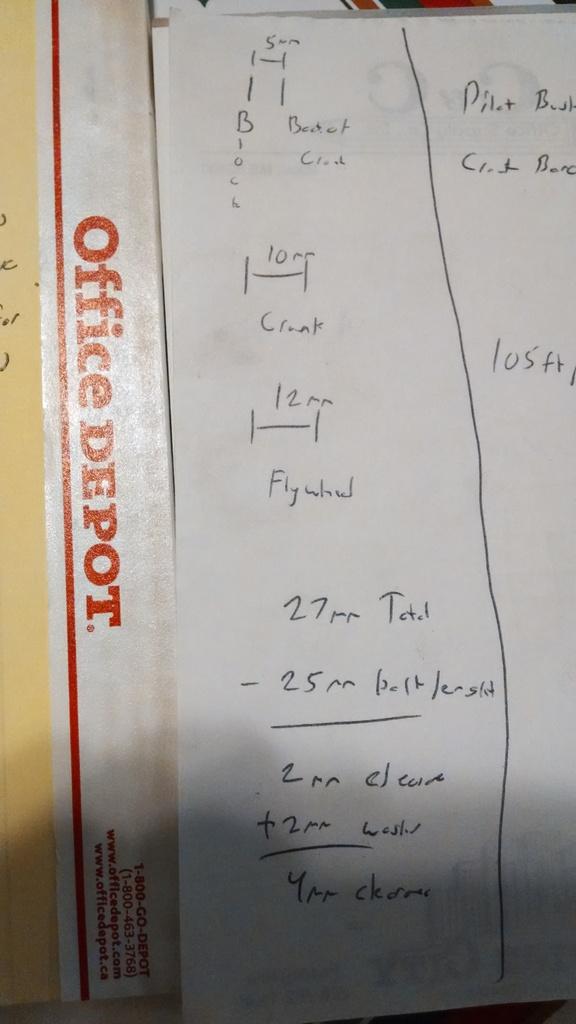 5mm
Block
10mm
Crank
12mm
Flywheel
27mm Total
- 25mm bolt length
2mm
+ 2mm washer
4mm clearance
Pilot
105 ft
Office DEPOT.
1-800-GO-DEPOT
(1-800-463-3768)
www.officedepot.com
www.officedepot.ca